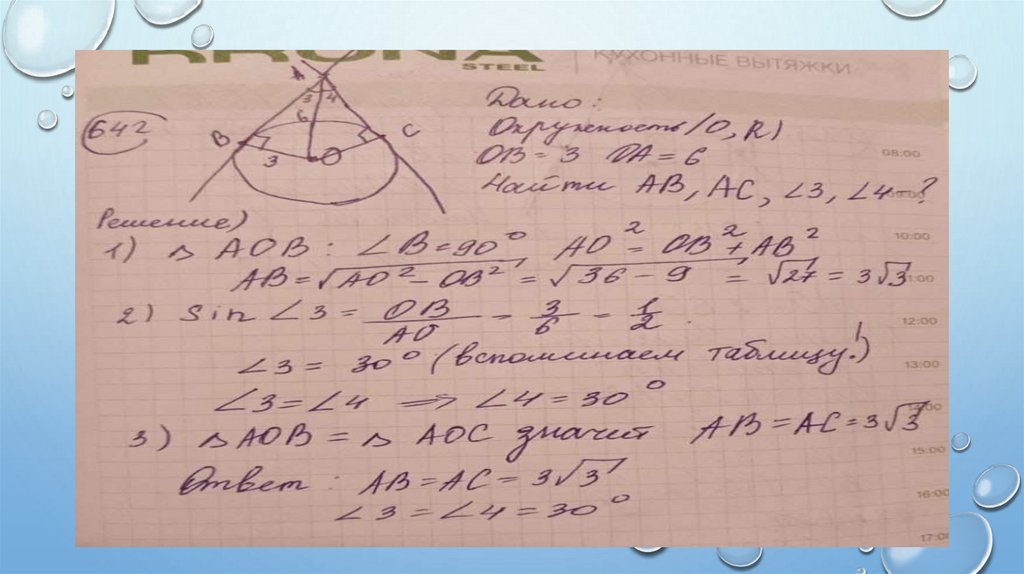 KRONA
STEEL
КУХОННЫЕ ВЫТЯЖКИ
642
A
3 4
6
B
C
3
O
Дано:
Окружность (O, R)
OB = 3 OA = 6
Найти AB, AC, ∠3, ∠4 - ?
Решение)
1) △ AOB : ∠B = 90°, AO² = OB² + AB²
AB = √AO² - OB² = √36 - 9 = √27 = 3√3
2) Sin ∠3 = OB/AO = 3/6 = 1/2.
∠3 = 30° (вспоминаем таблицу!)
∠3 = ∠4 => ∠4 = 30°
3) △ AOB = △ AOC значит AB = AC = 3√3
Ответ: AB = AC = 3√3
∠3 = ∠4 = 30°
08:00
09:00
10:00
11:00
12:00
13:00
14:00
15:00
16:00
17:00